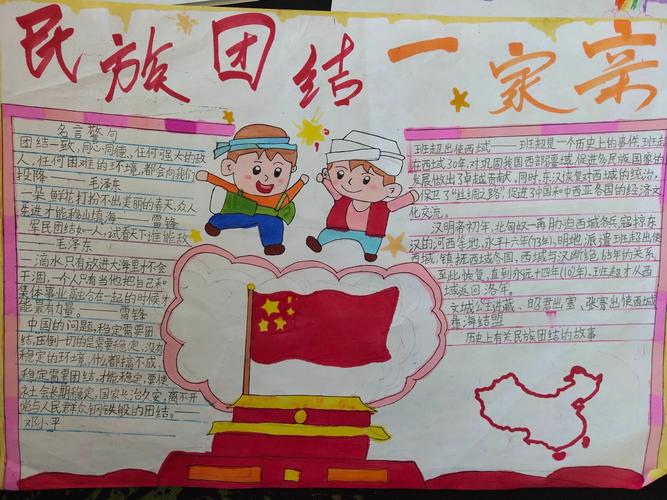 民族团结一家亲
名言警句
团结一致,同心同德,任何强大的敌
人,任何困难的环境,都会向我们
投降——毛泽东
一朵鲜花打扮不出美丽的春天,众人
先进才能移山填海——雷锋
军民团结如一人,试看天下谁能敌
——毛泽东
一滴水只有放进大海里才不会
干涸,一个人只有当他把自己和
集体事业融合在一起的时候才
能最有力量。——雷锋
中国的问题,稳定需要团
结,压倒一切的是需要稳定,没有
稳定的环境,什么都搞不成
稳定需要团结,才能稳定,要使
社会长期稳定,国家长治久安,离不开
党与人民群众钢铁般的团结。——
邓小平
班超出使西域——班超是一个历史上的事件,班超
在西域30年,对巩固我国西部疆域,促进多民族国家的
发展做出了卓越贡献,同时,东汉恢复对西域的统治,
保卫了"丝绸之路",促进中国和中西亚各国的经济文
化交流。
汉明帝初年,北匈奴一再胁迫西域各兵,寇掠东
汉的河西等地,永平十六年(73年),明帝派遣班超出使
西域,镇抚西域各国,西域与汉断绝65年的关系,
至此恢复,直到永元十四年(102年),班超才从西
域返回洛年。
文城公主进藏、昭君出塞、张骞出使西域
历史上有关民族团结的故事